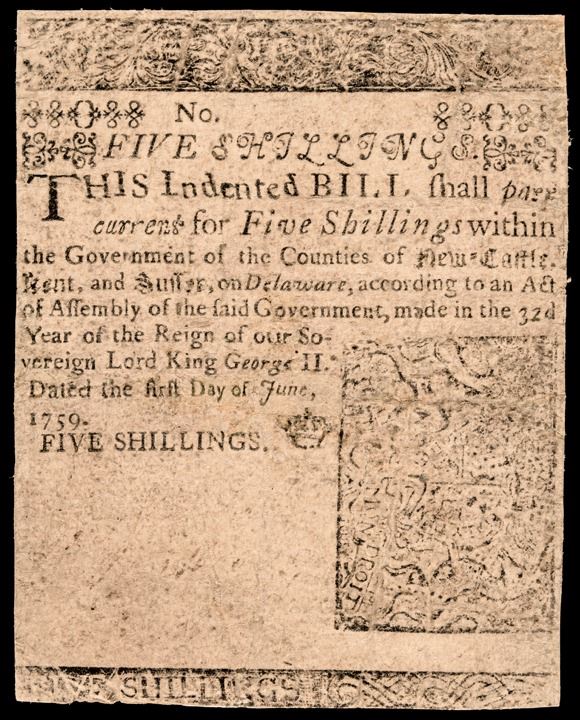 No.
FIVE SHILLINGS.
THIS Indented BILL ſhall paſs
current for Five Shillings within
the Government of the Counties of New-Caſtle,
Kent, and Suſſex, on Delaware, according to an Act
of Aſſembly of the ſaid Government, made in the 32d
Year of the Reign of our So-
vereign Lord King George II.
Dated the firſt Day of June,
1759.
FIVE SHILLINGS.
DROIT
FIVE SHILLINGS